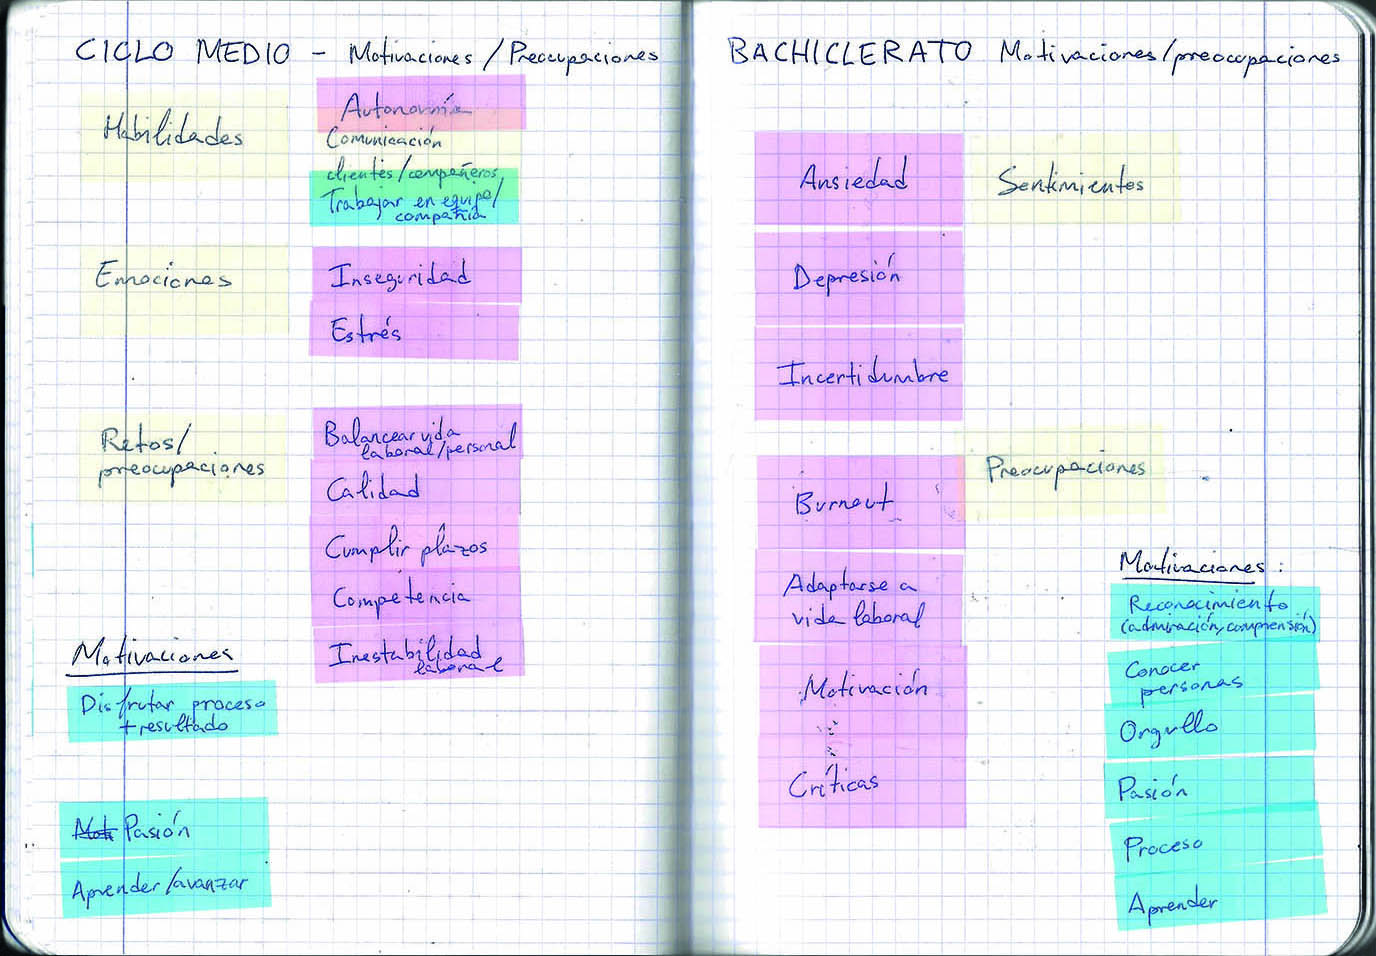 CICLO MEDIO - Motivaciones/Preocupaciones
Habilidades
Autonomía
Comunicación
clientes/compañeros
Trabajar en equipo/
compañia
Emociones
Inseguridad
Estrés
Retos/
preocupaciones
Balancear vida
laboral/personal
Calidad
Cumplir plazos
Competencia
Inestabilidad
laboral
Motivaciones
Disfrutar proceso
+ resultado
Moti Pasión
Aprender/avanzar
BACHICLERATO Motivaciones/preocupaciones
Ansiedad
Sentimientos
Depresión
Incertidumbre
Preocupaciones
Burnout
Adaptarse a
vida laboral
Motivación
Críticas
Motivaciones:
Reconocimiento
(admiración, comprensión)
Conocer
personas
Orgullo
Pasión
Proceso
Aprender